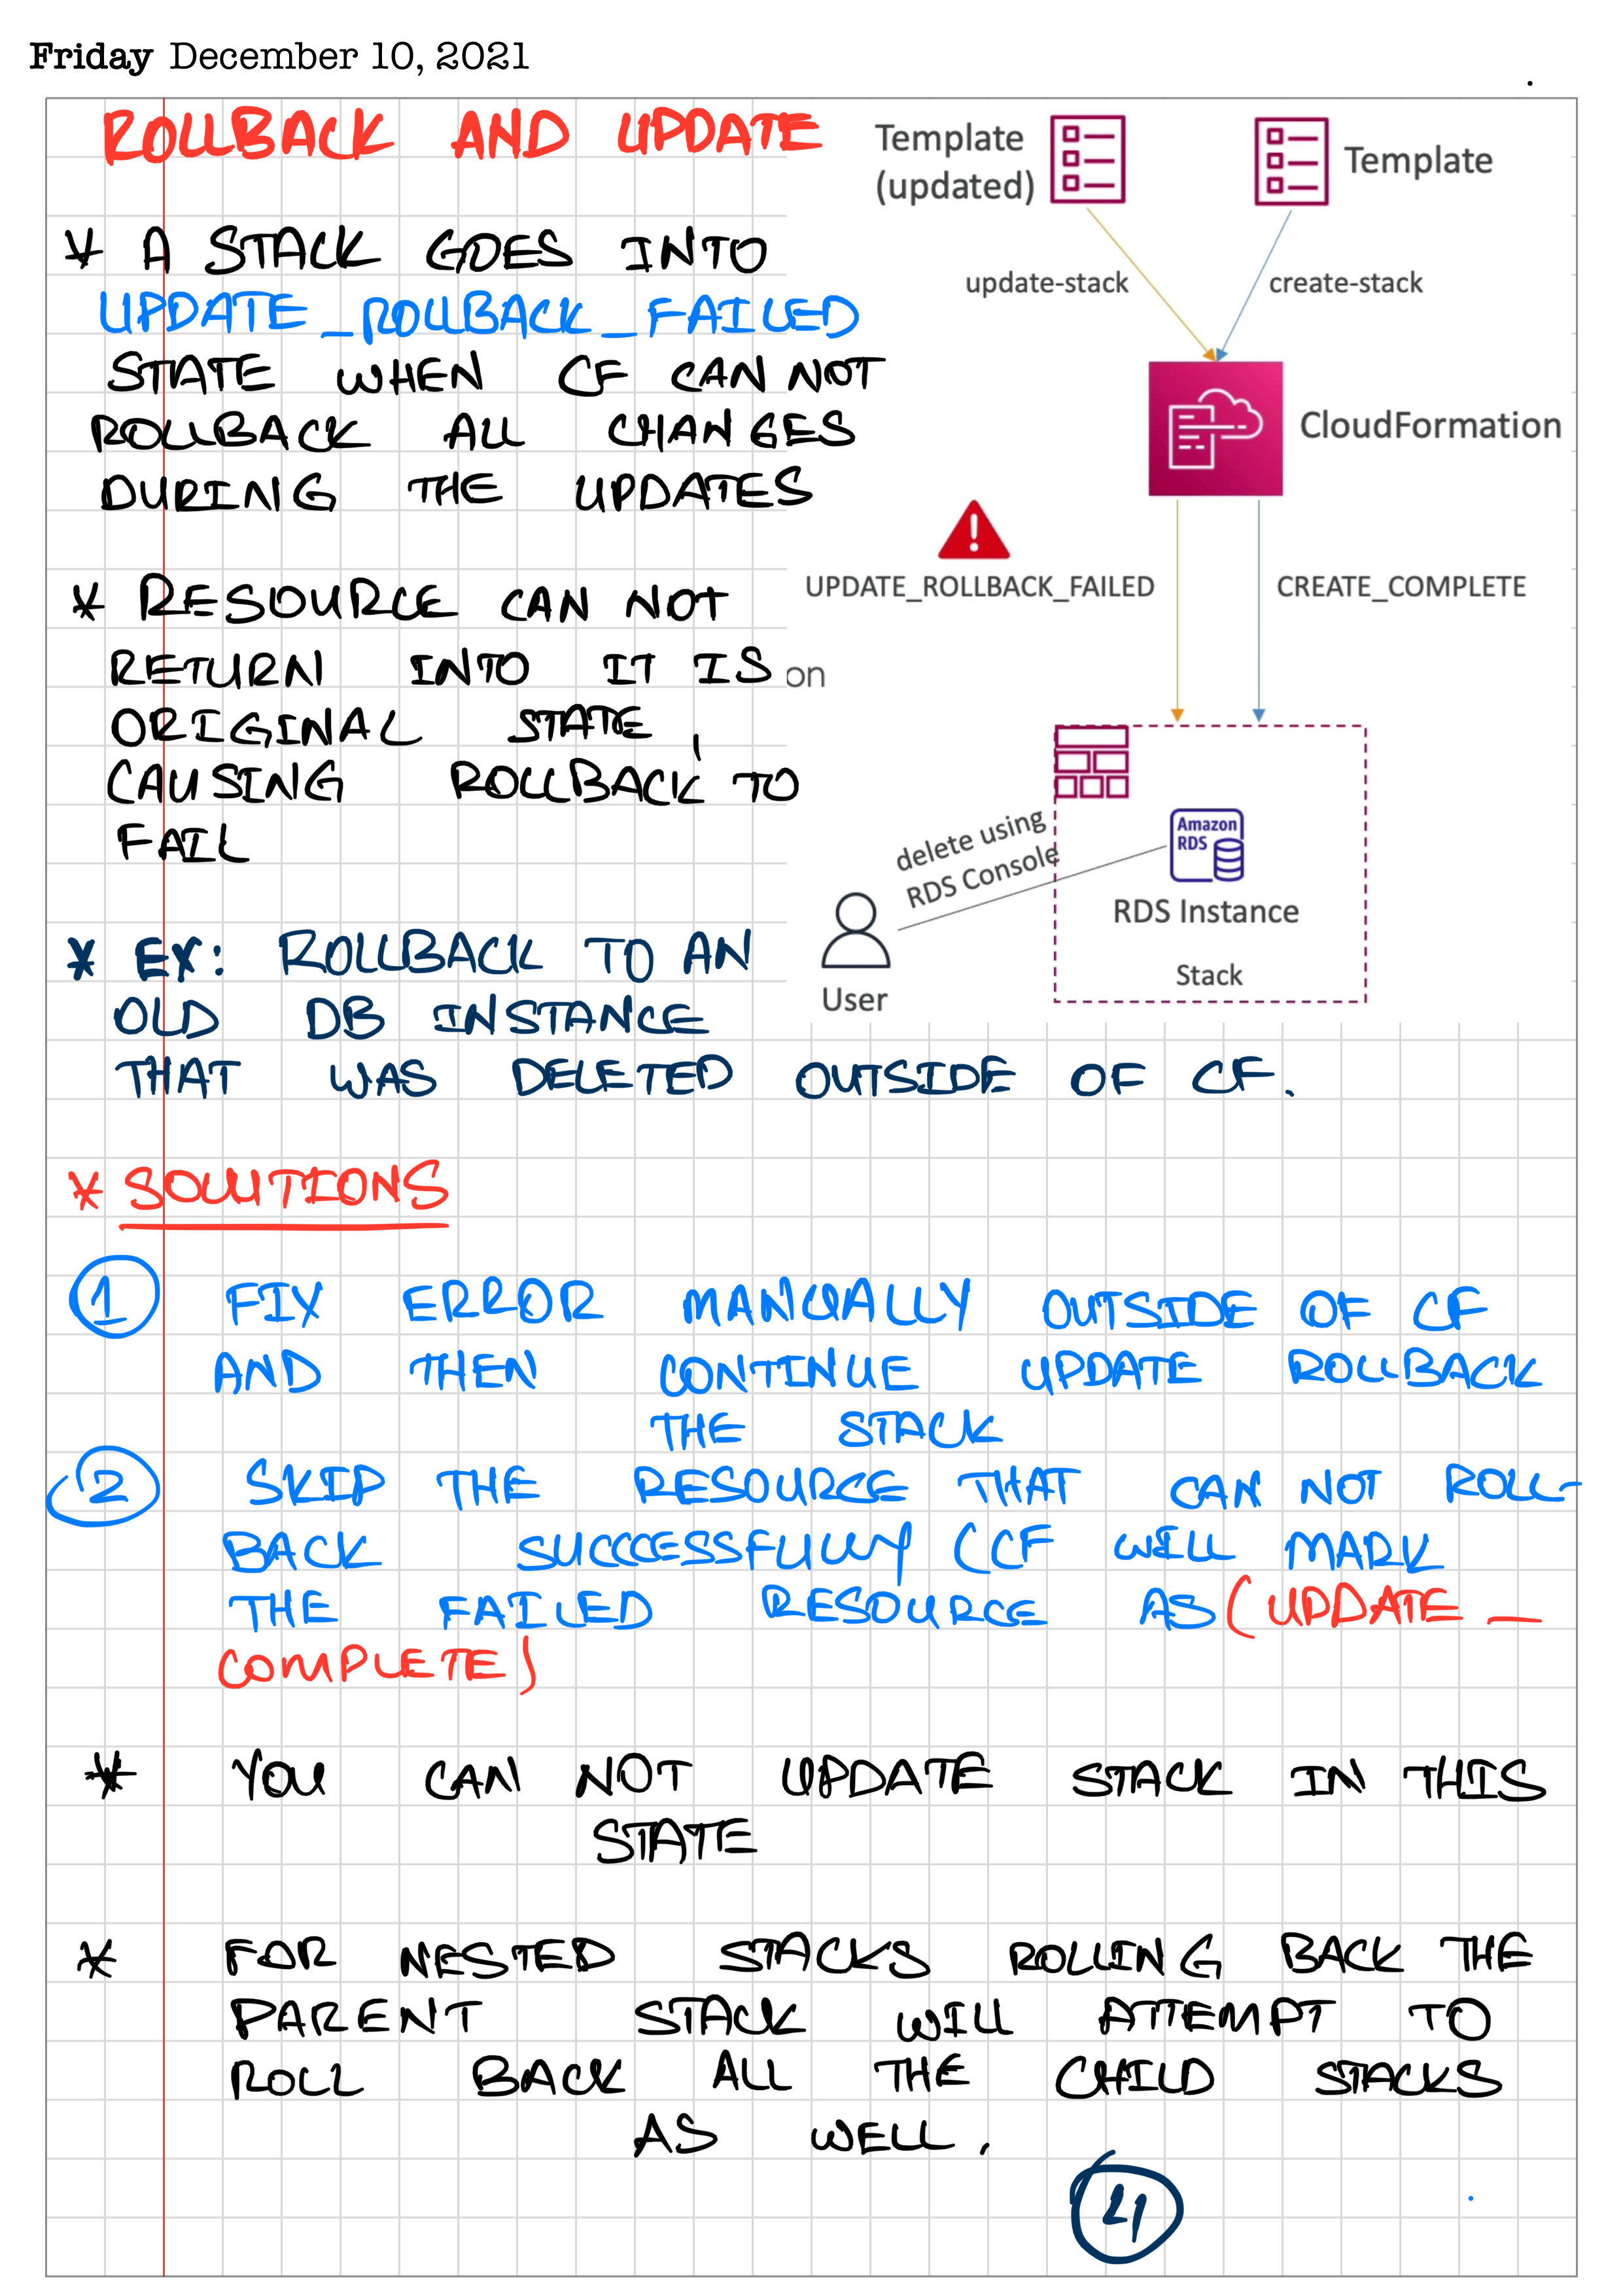 Friday December 10, 2021
ROLLBACK AND UPDATE
* A STACK GOES INTO
UPDATE_ROLLBACK_FAILED
STATE WHEN CF CAN NOT
ROLLBACK ALL CHANGES
DURING THE UPDATES
* RESOURCE CAN NOT
RETURN INTO IT IS
ORIGINAL STATE,
CAUSING ROLLBACK TO
FAIL
* EX: ROLLBACK TO AN
OLD DB INSTANCE
THAT WAS DELETED OUTSIDE OF CF.
Template
(updated)
Template
update-stack
create-stack
CloudFormation
UPDATE_ROLLBACK_FAILED
CREATE_COMPLETE
on
delete using
RDS Console
Amazon
RDS
RDS Instance
Stack
User
* SOLUTIONS
1 FIX ERROR MANUALLY OUTSIDE OF CF
AND THEN CONTINUE UPDATE ROLLBACK
THE STACK
2 SKIP THE RESOURCE THAT CAN NOT ROLL-
BACK SUCCCESSFULLY (CF WILL MARK
THE FAILED RESOURCE AS (UPDATE_
COMPLETE)
* YOU CAN NOT UPDATE STACK IN THIS
STATE
* FOR NESTED STACKS ROLLING BACK THE
PARENT STACK WILL ATTEMPT TO
ROLL BACK ALL THE CHILD STACKS
AS WELL.
4